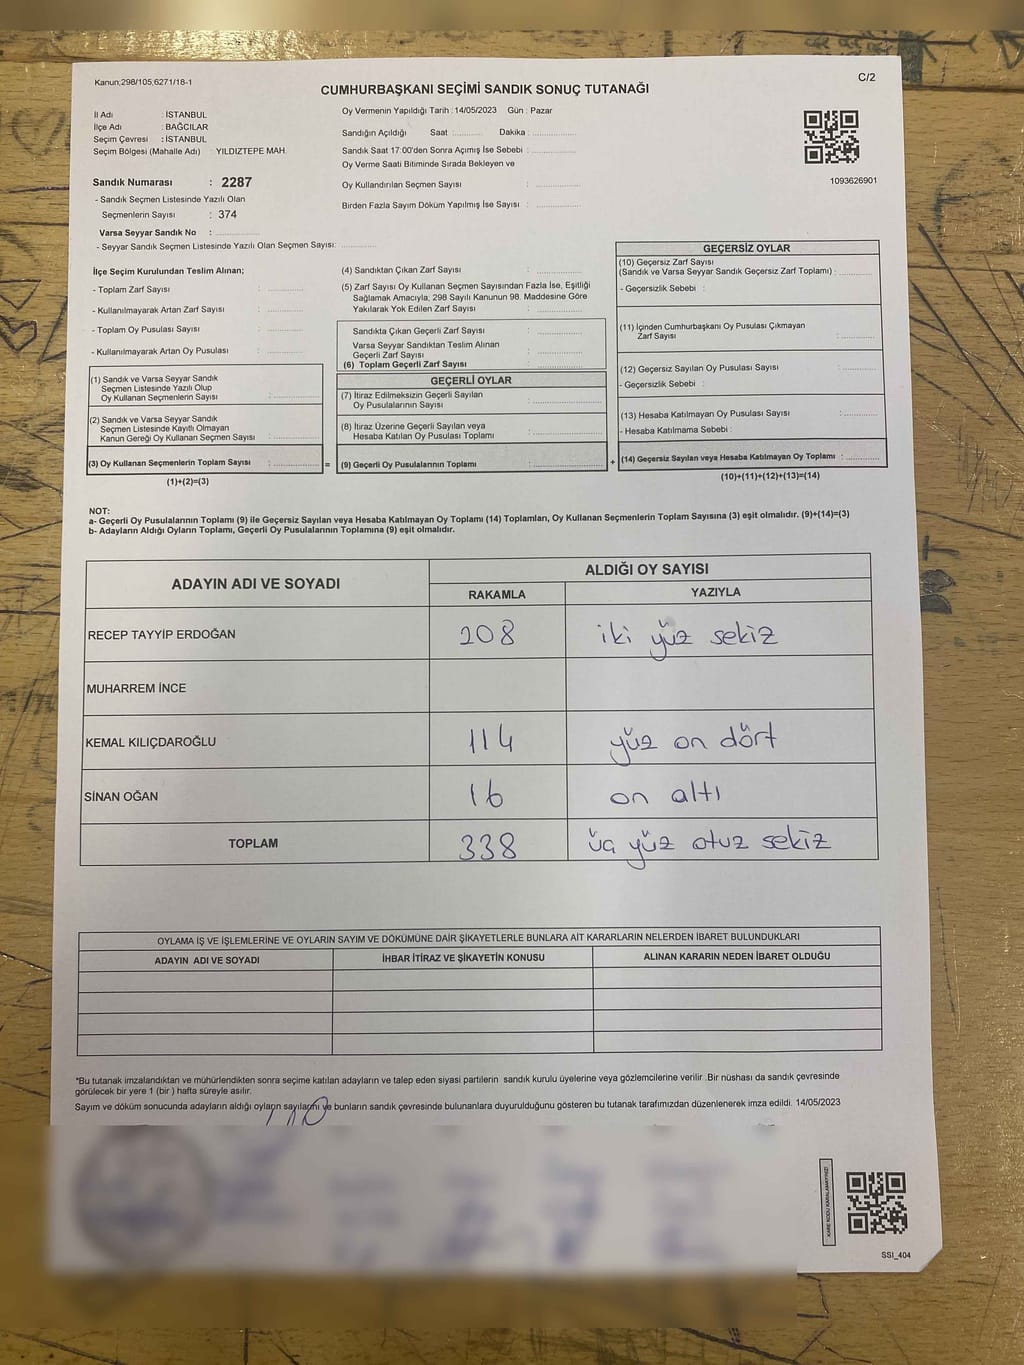 Kanun:298/105,6271/18-1
C/2
CUMHURBAŞKANI SEÇİMİ SANDIK SONUÇ TUTANAĞI
İl Adı : İSTANBUL
İlçe Adı : BAĞCILAR
Seçim Çevresi : İSTANBUL
Seçim Bölgesi (Mahalle Adı) : YILDIZTEPE MAH.
Sandık Numarası : 2287
- Sandık Seçmen Listesinde Yazılı Olan
Seçmenlerin Sayısı : 374
Varsa Seyyar Sandık No :
- Seyyar Sandık Seçmen Listesinde Yazılı Olan Seçmen Sayısı:
Oy Vermenin Yapıldığı Tarih : 14/05/2023 Gün : Pazar
Sandığın Açıldığı Saat : Dakika :
Sandık Saat 17:00'den Sonra Açımış İse Sebebi :
Oy Verme Saati Bitiminde Sırada Bekleyen ve
Oy Kullandırılan Seçmen Sayısı :
Birden Fazla Sayım Döküm Yapılmış İse Sayısı :
1093626901
İlçe Seçim Kurulundan Teslim Alınan;
- Toplam Zarf Sayısı :
- Kullanılmayarak Artan Zarf Sayısı :
- Toplam Oy Pusulası Sayısı :
- Kullanılmayarak Artan Oy Pusulası :
(1) Sandık ve Varsa Seyyar Sandık
Seçmen Listesinde Yazılı Olup
Oy Kullanan Seçmenlerin Sayısı :
(2) Sandık ve Varsa Seyyar Sandık
Seçmen Listesinde Kayıtlı Olmayan
Kanun Gereği Oy Kullanan Seçmen Sayısı :
(3) Oy Kullanan Seçmenlerin Toplam Sayısı :
(1)+(2)=(3)
(4) Sandıktan Çıkan Zarf Sayısı :
(5) Zarf Sayısı Oy Kullanan Seçmen Sayısından Fazla İse, Eşitliği
Sağlamak Amacıyla; 298 Sayılı Kanunun 98. Maddesine Göre
Yakılarak Yok Edilen Zarf Sayısı :
Sandıkta Çıkan Geçerli Zarf Sayısı :
Varsa Seyyar Sandıktan Teslim Alınan
Geçerli Zarf Sayısı :
(6) Toplam Geçerli Zarf Sayısı :
GEÇERLİ OYLAR
(7) İtiraz Edilmeksizin Geçerli Sayılan
Oy Pusulalarının Sayısı :
(8) İtiraz Üzerine Geçerli Sayılan veya
Hesaba Katılan Oy Pusulası Toplamı :
= (9) Geçerli Oy Pusulalarının Toplamı :
GEÇERSİZ OYLAR
(10) Geçersiz Zarf Sayısı
(Sandık ve Varsa Seyyar Sandık Geçersiz Zarf Toplamı) :
- Geçersizlik Sebebi :
(11) İçinden Cumhurbaşkanı Oy Pusulası Çıkmayan
Zarf Sayısı :
(12) Geçersiz Sayılan Oy Pusulası Sayısı :
- Geçersizlik Sebebi :
(13) Hesaba Katılmayan Oy Pusulası Sayısı :
- Hesaba Katılmama Sebebi :
+ (14) Geçersiz Sayılan veya Hesaba Katılmayan Oy Toplamı :
(10)+(11)+(12)+(13)=(14)
NOT:
a- Geçerli Oy Pusulalarının Toplamı (9) ile Geçersiz Sayılan veya Hesaba Katılmayan Oy Toplamı (14) Toplamları, Oy Kullanan Seçmenlerin Toplam Sayısına (3) eşit olmalıdır. (9)+(14)=(3)
b- Adayların Aldığı Oyların Toplamı, Geçerli Oy Pusulalarının Toplamına (9) eşit olmalıdır.
ADAYIN ADI VE SOYADI
ALDIĞI OY SAYISI
RAKAMLA YAZIYLA
RECEP TAYYİP ERDOĞAN 208 iki yüz sekiz
MUHARREM İNCE
KEMAL KILIÇDAROĞLU 114 yüz on dört
SİNAN OĞAN 16 on altı
TOPLAM 338 üç yüz otuz sekiz
OYLAMA İŞ VE İŞLEMLERİNE VE OYLARIN SAYIM VE DÖKÜMÜNE DAİR ŞİKAYETLERLE BUNLARA AİT KARARLARIN NELERDEN İBARET BULUNDUKLARI
ADAYIN ADI VE SOYADI İHBAR İTİRAZ VE ŞİKAYETİN KONUSU ALINAN KARARIN NEDEN İBARET OLDUĞU
*Bu tutanak imzalandıktan ve mühürlendikten sonra seçime katılan adayların ve talep eden siyasi partilerin sandık kurulu üyelerine veya gözlemcilerine verilir .Bir nüshası da sandık çevresinde
görülecek bir yere 1 (bir ) hafta süreyle asılır.
Sayım ve döküm sonucunda adayların aldığı oyların sayılarını ve bunların sandık çevresinde bulunanlara duyurulduğunu gösteren bu tutanak tarafımızdan düzenlenerek imza edildi. 14/05/2023
KARE KODU KARALAMAYINIZ!
SSI_404